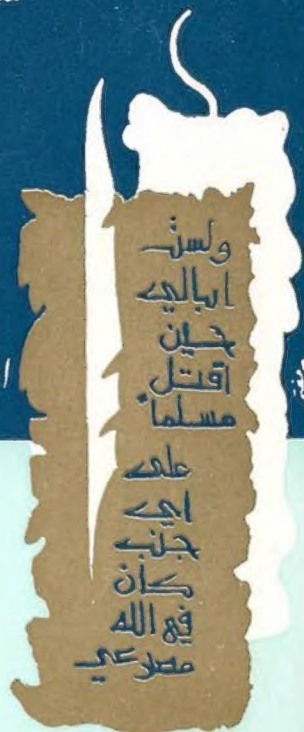 ولست
ابالي
حين
اقتل
مسلما
على
اي
جنب
كان
في الله
مصرعي